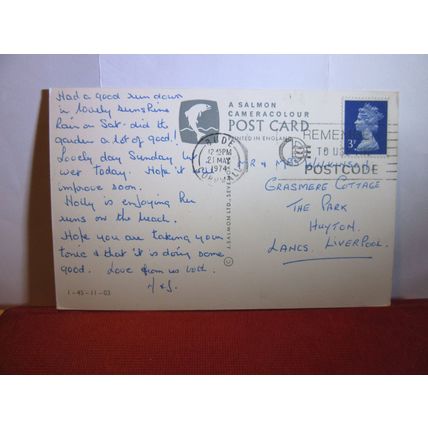 Had a good run down
in lovely sunshine
Rain on Sat- did the
garden a lot of good!
Lovely day Sunday but
wet today. Hope it will
improve soon.
Holly is enjoying her
runs on the beach.
Hope you are taking your
tonic & that it is doing some
good. Love from us both.
1-45-11-03
A SALMON
CAMERACOLOUR
POST CARD
PRINTED IN ENGLAND
J. SALMON LTD., SEVENOAKS
BUDE
12 45PM
21 MAY
1974
CORNWALL
REMEMBER
TO USE
POSTCODE
3P
MR & MRS WILKINSON
GRASMERE COTTAGE
THE PARK
HUYTON.
LANCS. LIVERPOOL.